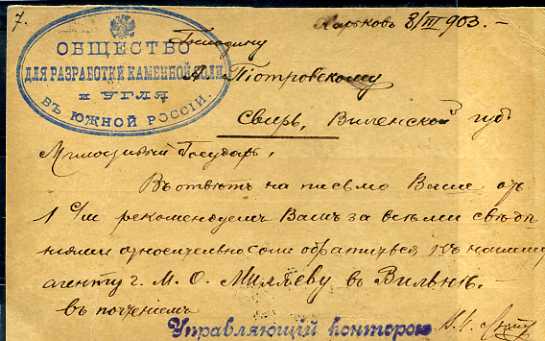 7.
Харьковъ 8/III 903. -
ОБЩЕСТВО
ДЛЯ РАЗРАБОТКИ КАМЕННОЙ СОЛИ
И УГЛЯ
ВЪ ЮЖНОЙ РОССІИ.
Господину
Піотровскому
Свирь, Виленской губ
Милостивый Государь,
Въ отвѣтъ на письмо Ваше отъ
1 с/м рекомендуемъ Вамъ за всѣми свѣдѣ
ніями относительно соли обратиться къ нашему
агенту г. М. О. Миляеву въ Вильнѣ.
въ почтеніемъ
Управляющій конторою